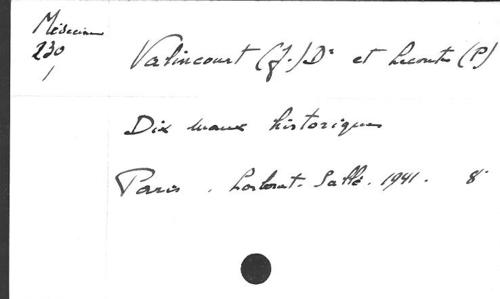 Médecine
230
/
Valincourt (J.) Dr et Lecomte (P)
Dix maux historiques
Paris . Sallé . 1941 . 8°